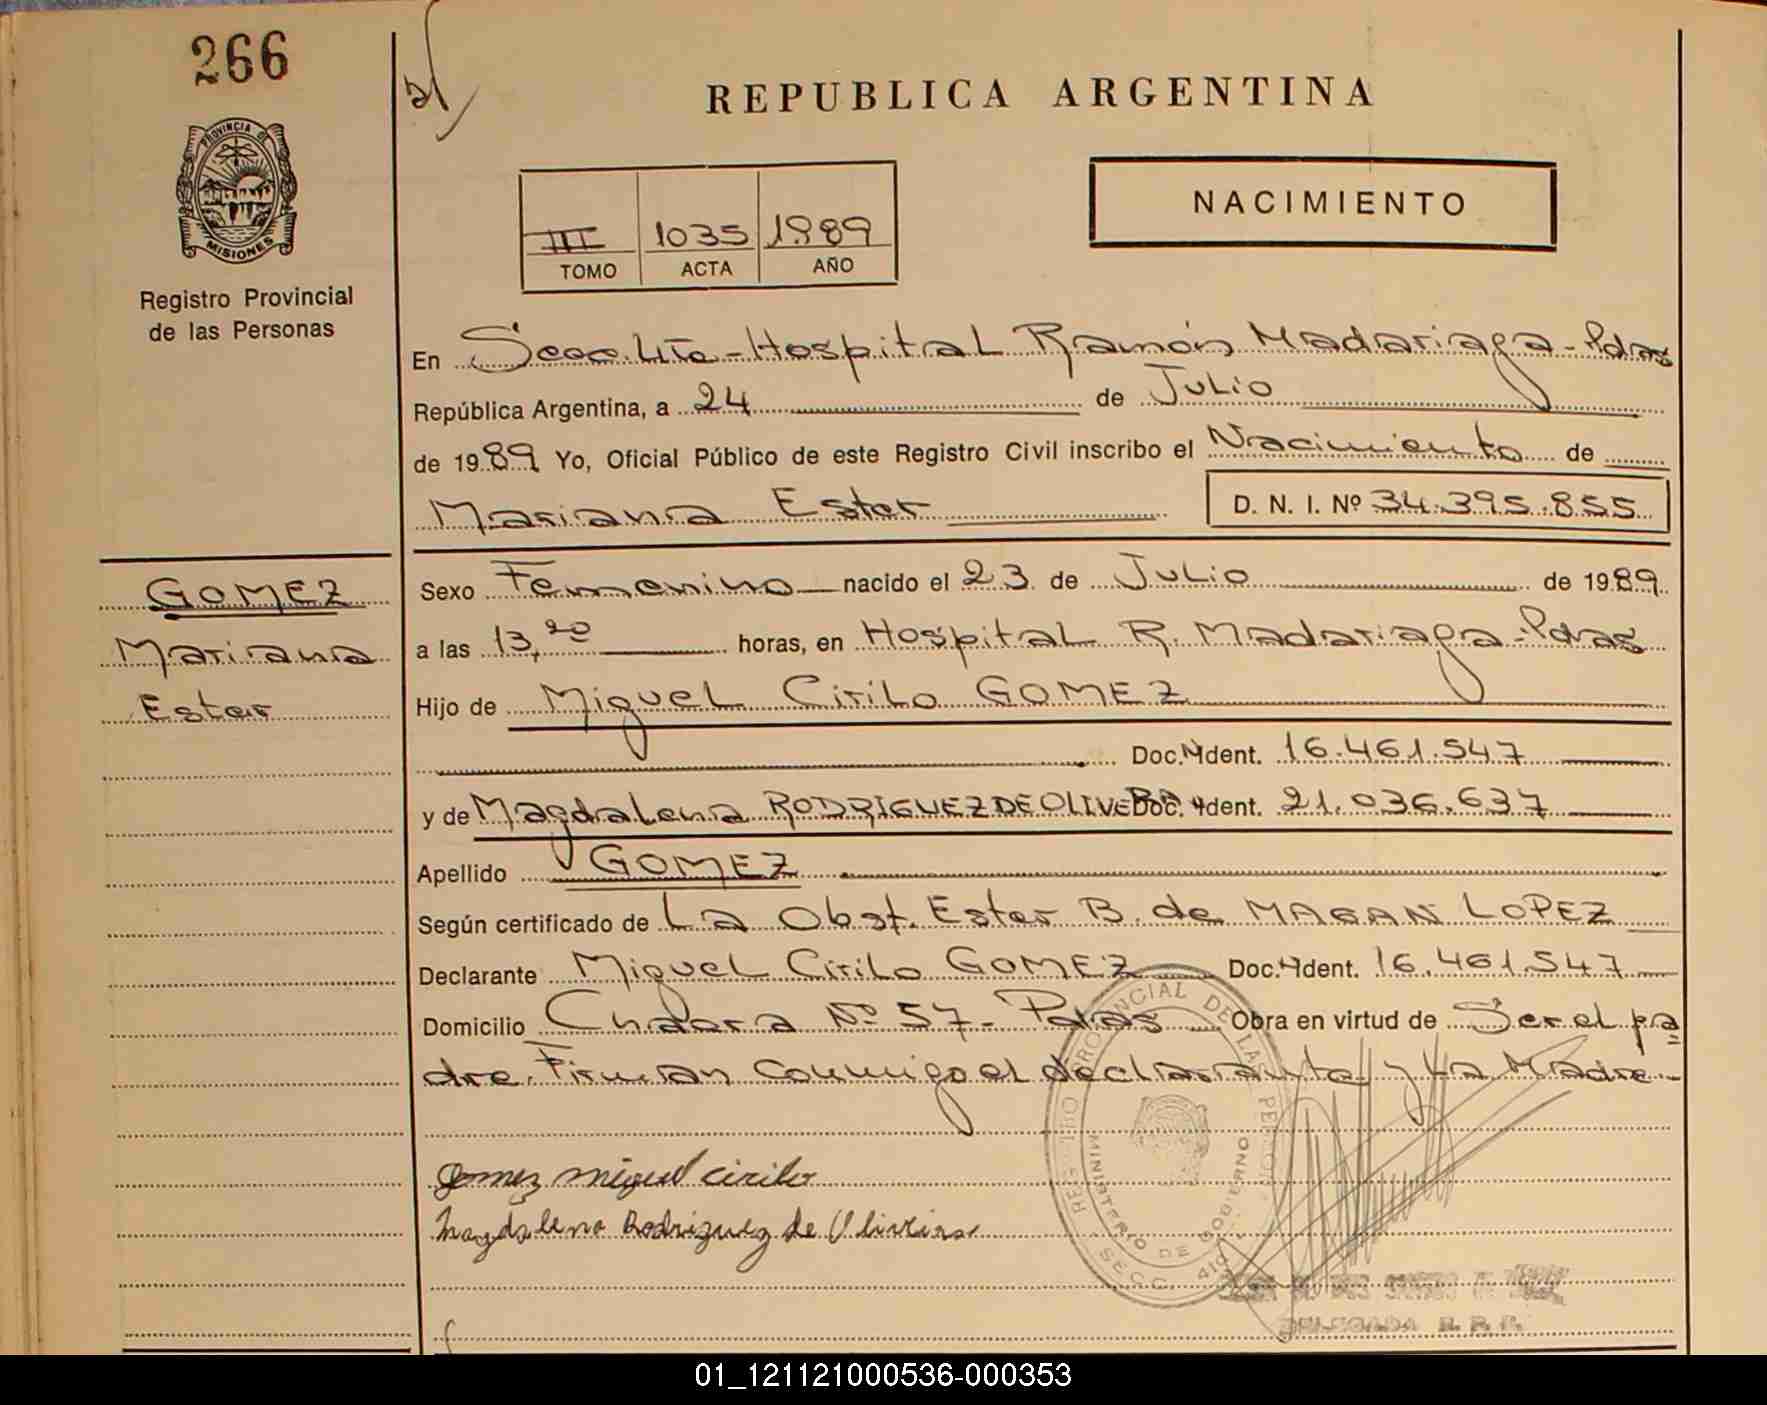 266
REPUBLICA ARGENTINA
PROVINCIA DE MISIONES
Registro Provincial
de las Personas
III 1035 1989
TOMO ACTA AÑO
NACIMIENTO
En Secc. 4ta - Hospital Ramón Madariaga - Pdas
República Argentina, a 24 de Julio
de 1989 Yo, Oficial Público de este Registro Civil inscribo el Nacimiento de
Mariana Ester D. N. I. Nº 34.395.855
GOMEZ
Mariana
Ester
Sexo Femenino nacido el 23 de Julio de 1989
a las 13,20 horas, en Hospital R. Madariaga - Pdas
Hijo de Miguel Cirilo GOMEZ
Doc. Ident. 16.461.547
y de Magdalena RODRIGUEZ DE OLIVERA Doc. Ident. 21.036.637
Apellido GOMEZ
Según certificado de La Obst. Ester B. de MAGAN LOPEZ
Declarante Miguel Cirilo GOMEZ Doc. Ident. 16.461.547
Domicilio Nº 57 - Pdas Obra en virtud de Ser el pa
dre. Firman conmigo el declarante y La Madre -
gomez miguel cirilo
Magdalena Rodriguez de Oliveira
REGISTRO PROVINCIAL DE LAS PERSONAS
MINISTERIO DE GOBIERNO
SECC. 4ta
DELEGADA R. P. P.
01_121121000536-000353